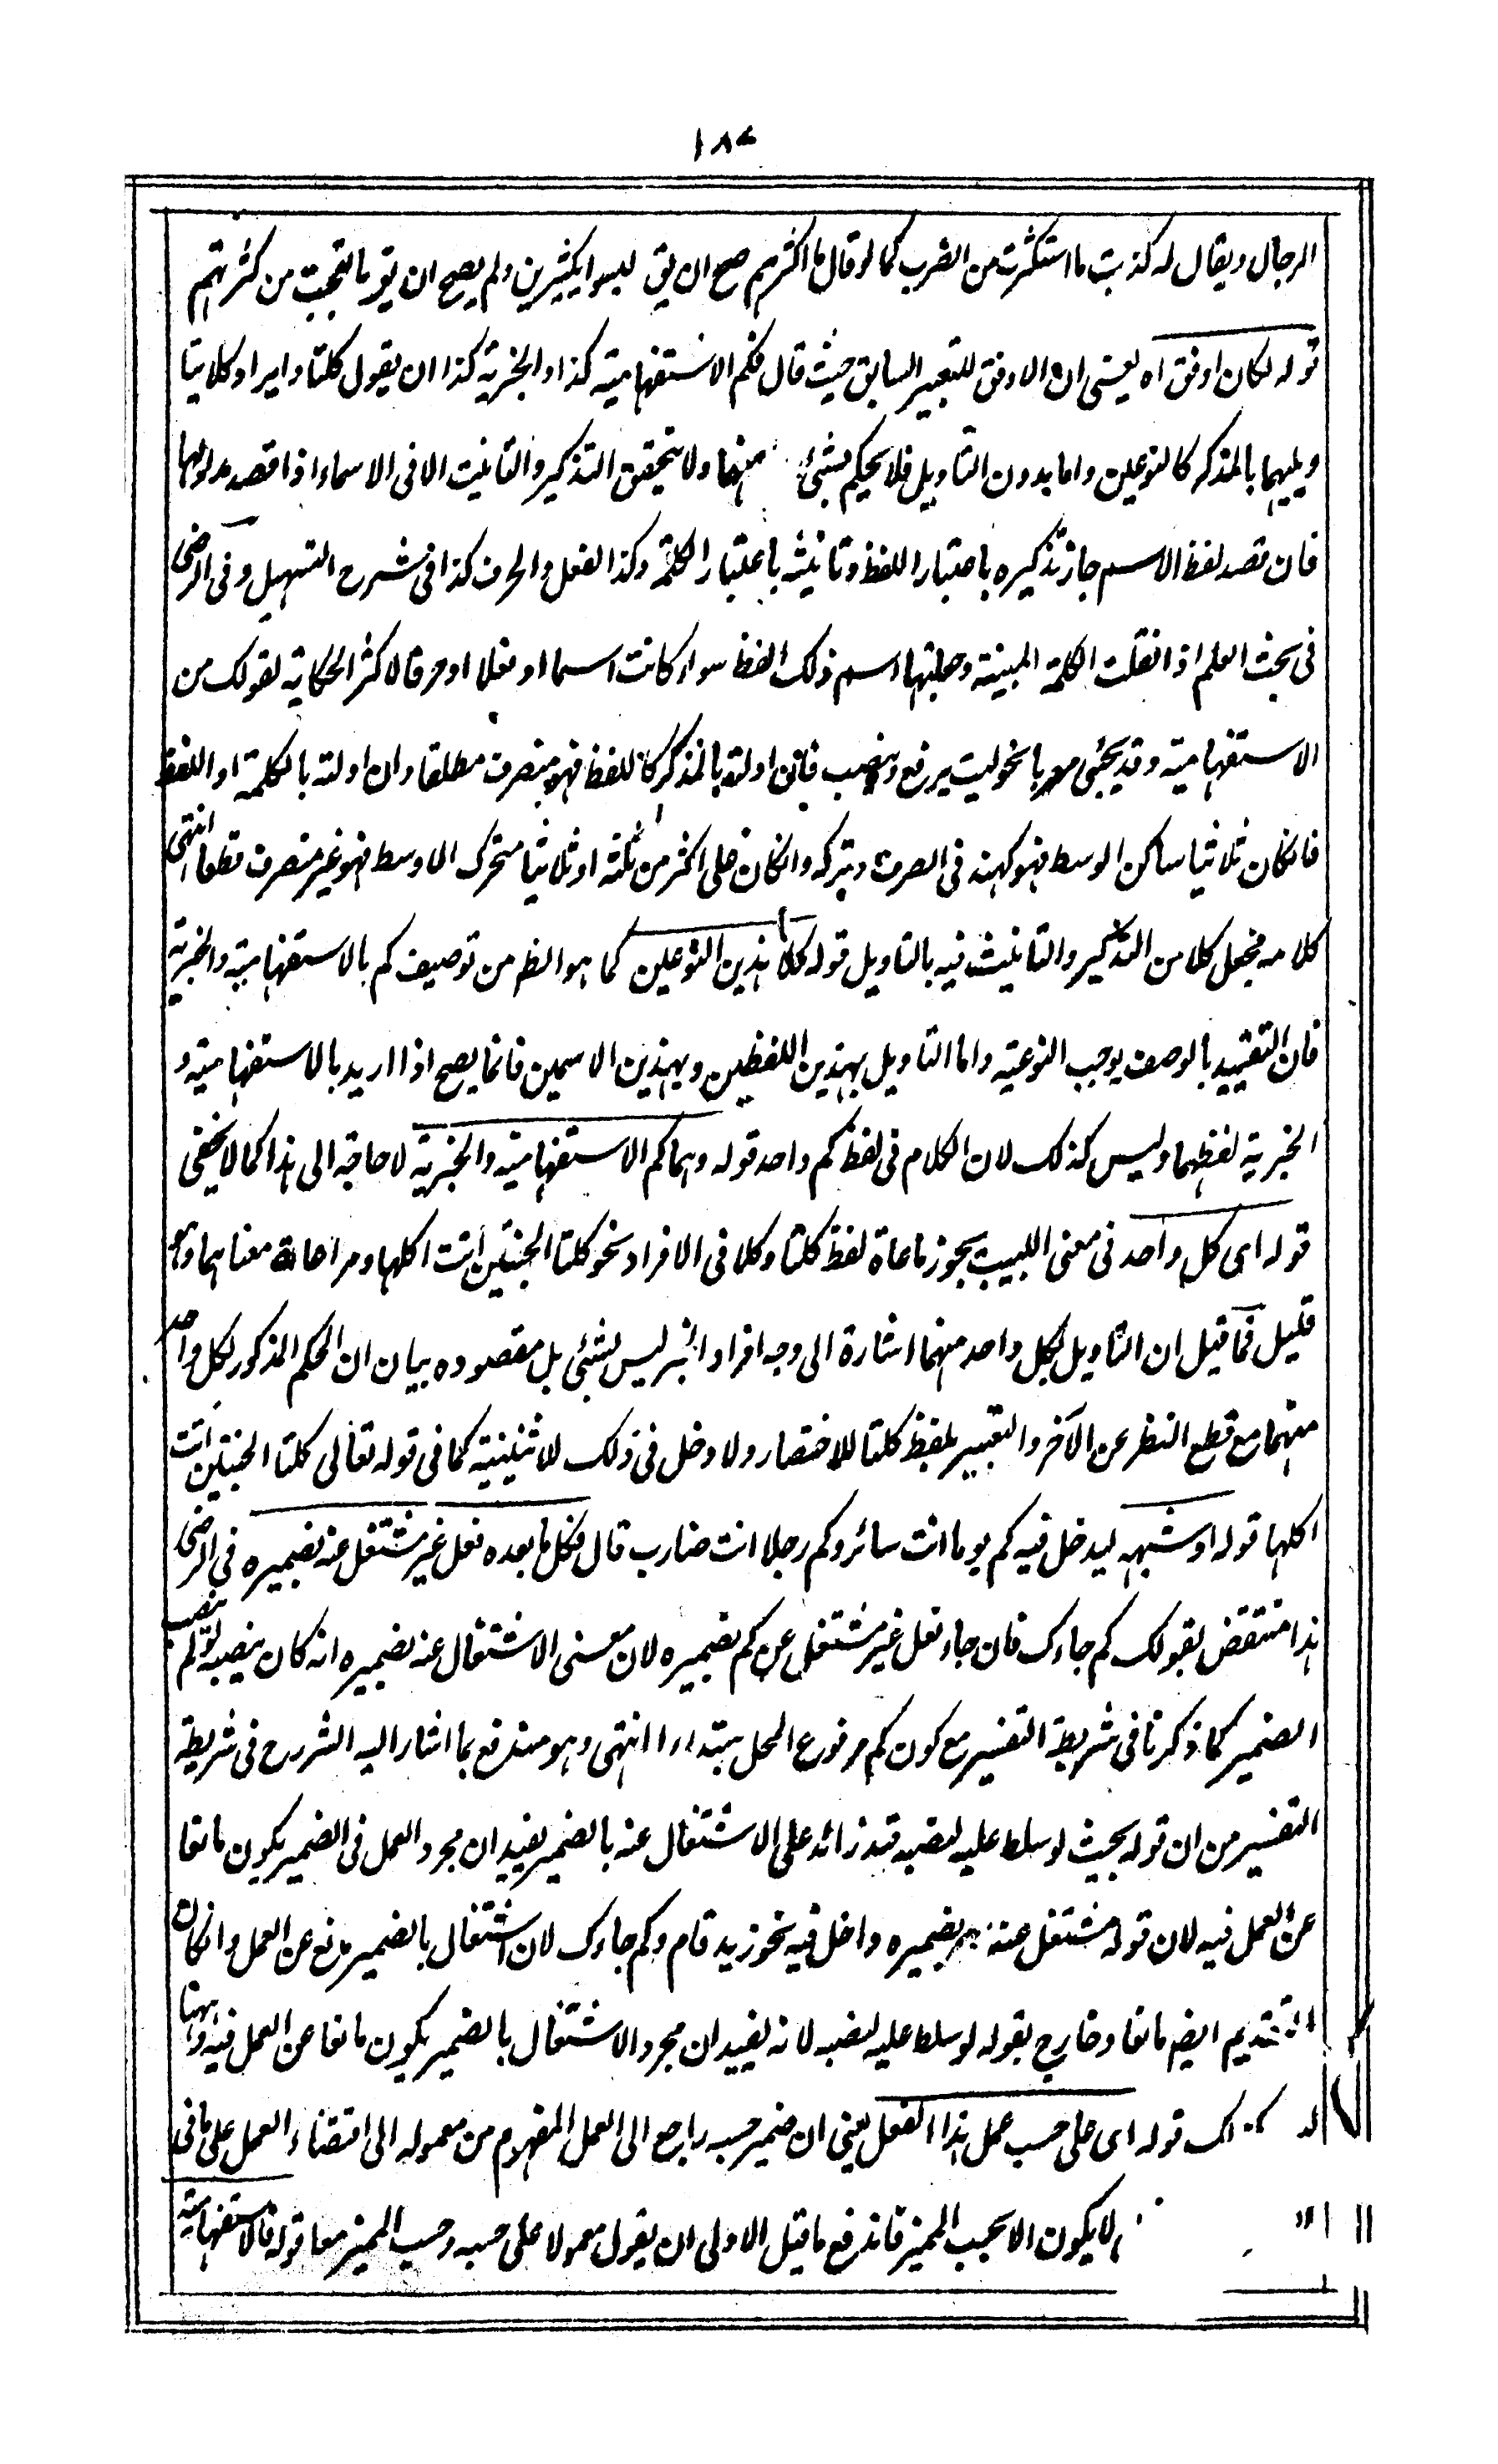 ١٨٧
الرجال ويقال له كذبت ما استكثرت من الضرب كما لو قال ما اكثرهم صح ان يق ليسوا بكثيرين ولم يصح ان يقو ما تعجبت من كثرتهم
قوله لكان اوفق اه يعنى ان الاوفق للتعبير السابق حيث قال فكم الاستفهامية كذا والخبرية كذا ان يقول كلتا وايراد كلا بتا
ويليهما بالمذكر كالنوعين واما بدون التاويل فلا يحكم بشئ منها ولا يتحقق التذكير والتانيث الا فى الاسماء اذا قصد مدلولها
فان قصد لفظ الاسم جاز تذكيره باعتبار اللفظ وتانيثه باعتبار الكلمة وكذا الفعل والحرف كذا فى شرح التسهيل وفى الرضى
فى بحث العلم اذا نقلت الكلمة المبينة وجعلتها اسم ذلك اللفظ سواء كانت اسما او فعلا او حرفا لاكثر الحكاية لقولك من
الاستفهامية وقد يجئى معربا نحو ليت يرفع وينصب فان اولته بالمذكر كاللفظ فهو منصرف مطلقا وان اولته بالكلمة او اللفظة
فانكان ثلاثيا ساكن الوسط فهو كهند فى الصرف وتركه وانكان على اكثر من ثلثة او ثلاثيا متحرك الاوسط فهو غير منصرف قطعا انتهى
كلامه فجعل كلا من التذكير والتانيث فيه بالتاويل قوله كلا هذين النوعين كما هو الظ من توصيف كم بالاستفهامية والخبرية
فان التقييد بالوصف يوجب النوعية واما التاويل بهذين اللفظين وبهذين الاسمين فانما يصح اذا اريد بالاستفهامية و
الخبرية لفظهما وليس كذلك لان الكلام فى لفظ كم واحد قوله وهما كم الاستفهامية والخبرية لا حاجة الى هذا كما لا يخفى
قوله اى كل واحد فى مغنى اللبيب يجوز مراعاة لفظ كلتا وكلا فى الافراد نحو كلتا الجنتين اتت اكلها ومراعاة معناهما وهو
قليل فما قيل ان التاويل بكل واحد منهما اشارة الى وجه افراد الخبر ليس بشئى بل مقصوده بيان ان الحكم المذكور لكل واحد
منهما مع قطع النظر عن الآخر والتعبير بلفظ كلتا للاختصار ولا دخل فى ذلك للاثنينية كما فى قوله تعالى كلتا الجنتين اتت
اكلها قوله او شبهه ليدخل فيه كم يوما انت سائر وكم رجلا انت ضارب قال فكل ما بعده فعل غير مشتغل عنه بضميره فى الرضى
هذا منتقض بقولك كم جاءك فان جاء فعل غير مشتغل عن كم بضميره لان معنى الاشتغال عنه بضميره انه كان ينصبه لو لم ينصب
الضمير كما ذكرنا فى شريطة التفسير مع كون كم مرفوع المحل مبتداء انتهى وهو مندفع بما اشار اليه الشررح فى شريطة
التفسير من ان قوله بحيث لو سلط عليه لنصبه قيد زائد على الاشتغال عنه بالضمير يفيد ان مجرد العمل فى الضمير يكون مانعا
عن العمل فيه لان قوله مشتغل عنه بضميره داخل فيه نحو زيد قام وكم جاءك لان اشتغال بالضمير مانع عن العمل وانكان
التقديم ايضا مانعا وخارج بقوله لو سلط عليه لنصبه لانه يفيد ان مجرد الاشتغال بالضمير يكون مانعا عن العمل فيه وههنا
قوله اى على حسب عمل هذا الفعل يعنى ان ضمير حسبه راجع الى العمل المفهوم من معموله الى اقتضاء العمل على ما فى
لا يكون الا بحسب المميز فاندفع ما قيل الاولى ان يقول معمولا على حسبه وحسب المميز معا قوله فالاستفهامية